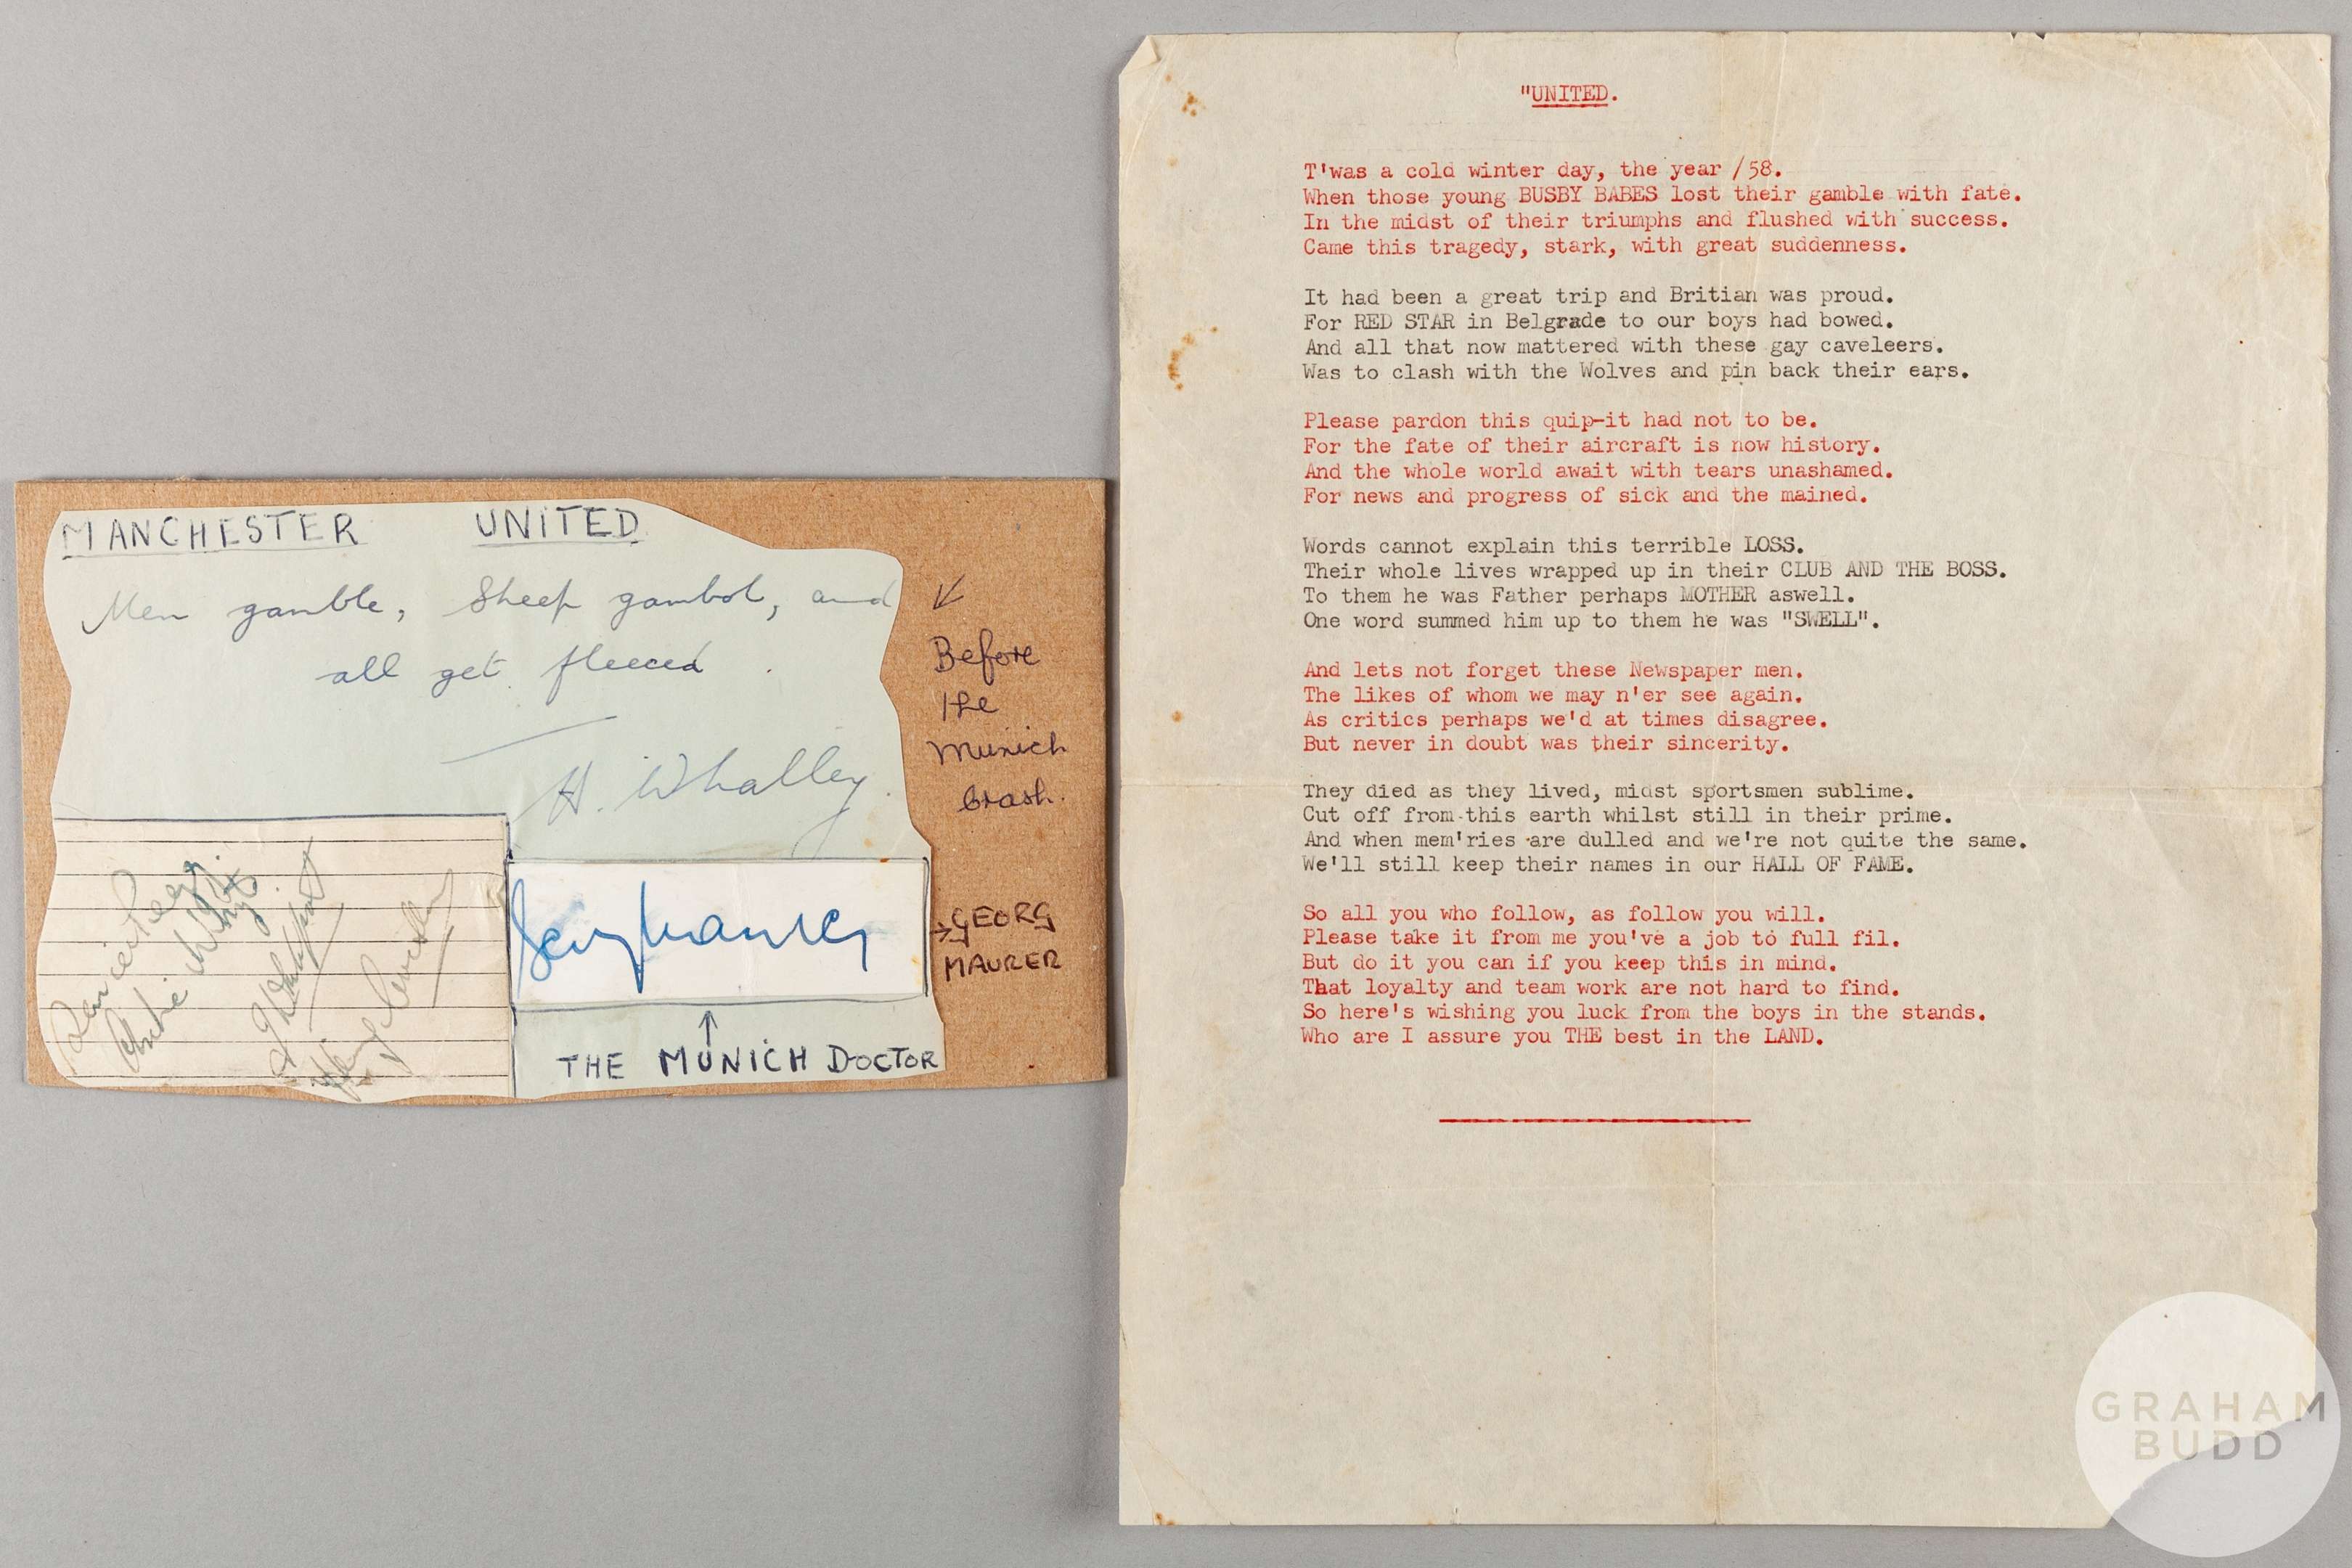 MANCHESTER UNITED
Men gamble, Sheep gambol, and
all get fleeced.
H. Whalley.
Before
the
Munich
Crash.
GEORG
MAURER
THE MUNICH DOCTOR
"UNITED.
T'was a cold winter day, the year /58.
When those young BUSBY BABES lost their gamble with fate.
In the midst of their triumphs and flushed with success.
Came this tragedy, stark, with great suddenness.
It had been a great trip and Britian was proud.
For RED STAR in Belgrade to our boys had bowed.
And all that now mattered with these gay caveleers.
Was to clash with the Wolves and pin back their ears.
Please pardon this quip-it had not to be.
For the fate of their aircraft is now history.
And the whole world await with tears unashamed.
For news and progress of sick and the mained.
Words cannot explain this terrible LOSS.
Their whole lives wrapped up in their CLUB AND THE BOSS.
To them he was Father perhaps MOTHER aswell.
One word summed him up to them he was "SWELL".
And lets not forget these Newspaper men.
The likes of whom we may n'er see again.
As critics perhaps we'd at times disagree.
But never in doubt was their sincerity.
They died as they lived, midst sportsmen sublime.
Cut off from this earth whilst still in their prime.
And when mem'ries are dulled and we're not quite the same.
We'll still keep their names in our HALL OF FAME.
So all you who follow, as follow you will.
Please take it from me you've a job to full fil.
But do it you can if you keep this in mind.
That loyalty and team work are not hard to find.
So here's wishing you luck from the boys in the stands.
Who are I assure you THE best in the LAND.
GRAHAM
BUDD